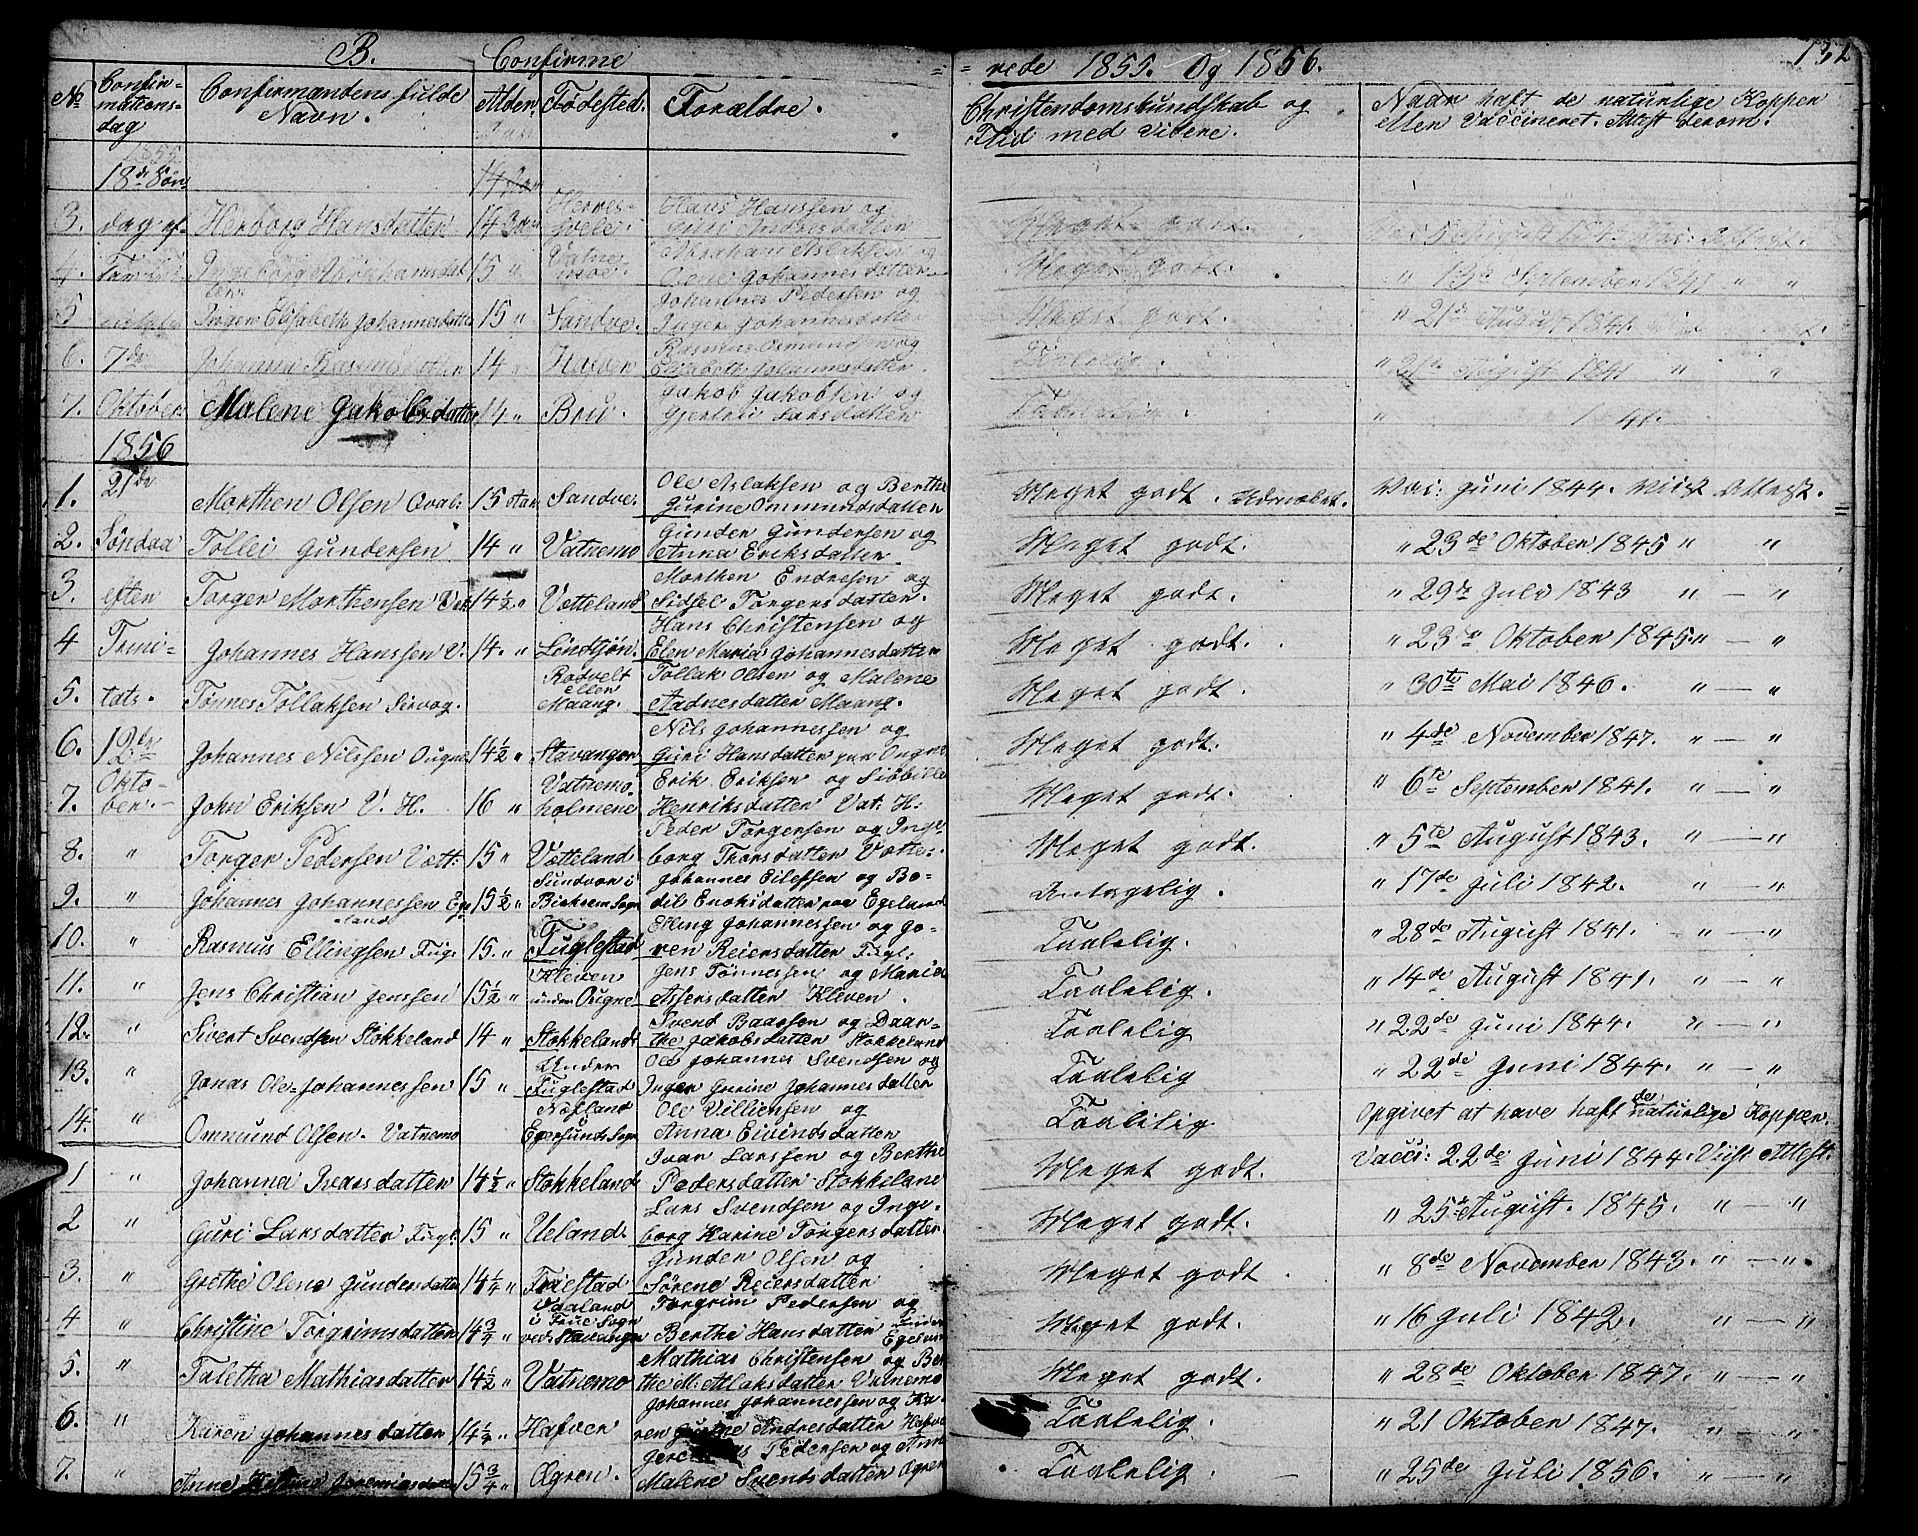 B. Confirme = = rede 1855. Og 1856. 132
No Confirmationsdag Confirmandens fulde Navn. Alder Fødested. Forældre. Christendomskundskab og Flid med videre. Naar haft de naturlige Kopper eller Vaccineret. Attest derom.
1855
18de Søn
3. dag ef- Herborg Hansdatter 14 Hans Hanssen og Guri Andresdatter Meget godt.
4. Ingeborg Abrahamsdat ter. 15 " Vatnemoe. Abraham Aslaksen og Lene Johannesdatter Meget godt. " September 1841 " "
5 Inger Elisabeth Johannesdatter 15 " Sandve. Johannes Pedersen og Inger Johannesdatter Meget godt. " 21de August 1841.
6. 7de Johanna Rasmusdatter 14 " Hafver Rasmus Osmundsen og Elisabeth Johannesdatter. Taalelig. August 1841 " "
7. Oktober Malene Jakobsdatter 14 " Bru. Jakob Jakobsen og Gjertrui Larsdatter Taalelig. " 1841.
1856
1. 21de Morthen Olsen Qval: 15 Aar Sandve. Ole Aslaksen og Berthe Gurine Ommundsdatter Meget godt. Udmærket. Vac: Juni 1844. Viist Attest.
2. Søndag Tollei Gundersen 14 " Vatnemo Gunder Gundersen og Anna Eriksdatter Meget godt. " 23de Oktober 1845 " "
3. efter Torger Morthensen Væt 14½ " Vætteland Morthen Endresen og Sidsel Torgersdatter. Meget godt. " 29de Juli 1843 " — "
4 Trini- Johannes Hanssen V. 14. " Lindtjøn. Hans Christensen og Elen Maria Johannesdatter Meget godt. " 23de Oktober 1845 " — "
5. tats. Tønnes Tollaksen Sirvog. Rodvelt eller Maang. Tollak Olsen og Malene Aadnesdatter Maang. Meget godt. " 30te Mai 1846. " — "
6. 12de Johannes Nilssen Ougne 14½ " Stavanger Nils Johannessen og Guri Hansdatter paa Ougne Meget godt. " 4de November 1847. " — "
7. Oktober. — John Eriksen V. H. 16 " Vatnemoholmene Erik Eriksen og Sibbille Henriksdatter Vat: H. Meget godt. " 6te September 1841. " — "
8. " Torger Pedersen Vætt: 15 " Vætteland Peder Torgersen og Ingeborg Thorsdatter Vætte:. Meget godt. " 5te August 1843. " — "
9. " Johannes Johannessen Egeland 15½ " Sundvor i Birkrem Sogn Johannes Eilefsen og Bodil Enoksdatter paa Egeland Antagelig. " 17de Juli 1842. " — "
10. " Rasmus Ellingsen Fugl. 15. " Fuglestad Elling Johannessen og Goren Reiersdatter Fugl: Taalelig. " 28de August 1841. " — "
11. " Jens Christian Jenssen 15½ " Kleven under Ougne. Jens Tønnessen og Maria Assersdatter Kleven. Taalelig. " 14de August 1841. " — "
12. " Sivert Svendsen Stokkeland 14 " Stokkeland: Svend Baarsen og Daarthe Jakobsdatter Stokkeland Taalelig " 22de Juni 1844. " — "
13. " Jonas Ole Johannessen 15 " Under Fuglestad Ole Johannes Svendsen og Inger Gurine Johannesdatter Taalelig " 22de Juni 1844. " — "
14. " Ommund Olsen. Vatnemo Nesland Egersunds Sogn Ole Villiensen og Anna Eivindsdatter Taalelig Opgivet at have haft de naturlige Kopper.
1 " Johanna Ivarsdatter 14½ " Stokkeland: Ivar Larssen og Berthe Pedersdatter Stokkeland Meget godt. Vacci: 22de Juni 1844. Viist Attest.
2 " Guri Larsdatter Fugl: 15 " Ueland. Lars Svendsen og Ingeborg Karine Torgersdatter Meget godt. " 25de August. 1845. " — "
3. " Grethe Olene Gundersdatter 14½ " Fuglestad Gunder Olsen og Sørene Reiersdatter Meget godt. " 8de November 1843. " — "
4 " Christine Torgrimsdatter 14¾ " Vaaland i Frue Sogn ved Stavanger Torgrim Pedersen og Berthe Hansdatter under Egeland Meget godt. " 16 Juli 1842. " — "
5. " Taletha Mathiasdatter 14½ " Vatnemo Mathias Christensen og Berthe M: Aslaksdatter Vatnemo Meget godt. " 28de Oktober 1847. " — "
6. " Karen Johannesdatter 14½ " Hafver Johannes Johannessen og Karen Andresdatter Hafver Taalelig. " 21 Oktober 1847. " — "
7. " Anne Jeremiasdatter 15¾ " Ogren. Pedersen og Anne Malene Svendsdatter Ogren Taalelig. " 25de Juli 1856. " — "